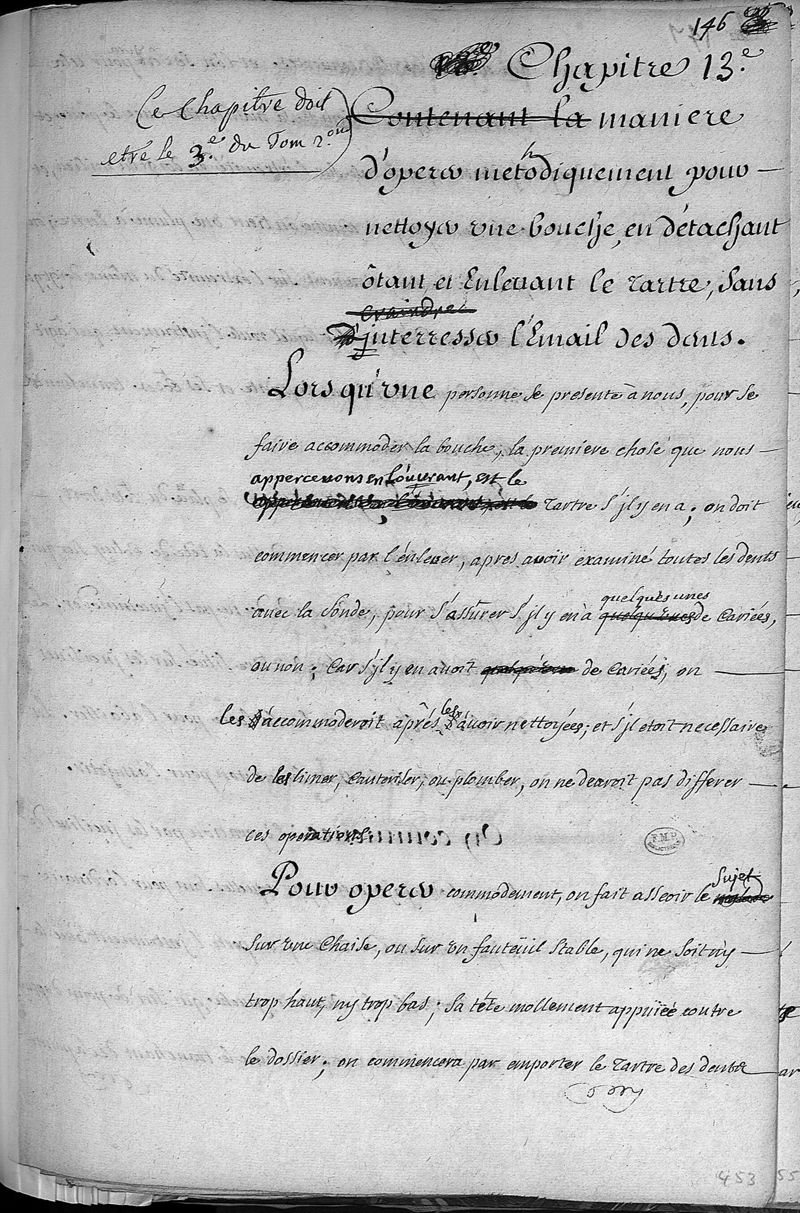 146
Chapitre 13.e
Ce Chapitre doit
etre le 3.e du Tom 2.
Contenant la maniere
d'operer methodiquement pour
nettoyer vne bouche, en détachant
ôtant, et Enlevant le Tartre, sans
craindre
jnterresser l'Email des dents.
Lors qu'vne personne se presente à nous, pour se
faire accommoder la bouche, la premiere chose que nous
appercevons en L'ouvrant, est le
Tartre s'jl y en a; on doit
commencer par l'énlever, apres avoir examiné toutes les dents
quelques unes
avéc la sonde, pour s'assurer s'jl y en a quelqu'vnes de Cariées,
ou non; Car s'jl y en avoit quelqu'vne de Cariées, on
les
les accommoderoit aprés avoir nettoyées; et s'jl étoit necessaire
de les limer, Cauteriser, ou plomber, on ne devroit pas differer
ces operations.
Pour operer commodement, on fait asseoir le Sujet
sur vne Chaise, ou sur vn fauteüil stable, qui ne soit ny
trop haut, ny trop bas; sa téte mollement appuiée contre
le dossier; on commencera par emporter le Tartre des dents
F.M.P.
453
55